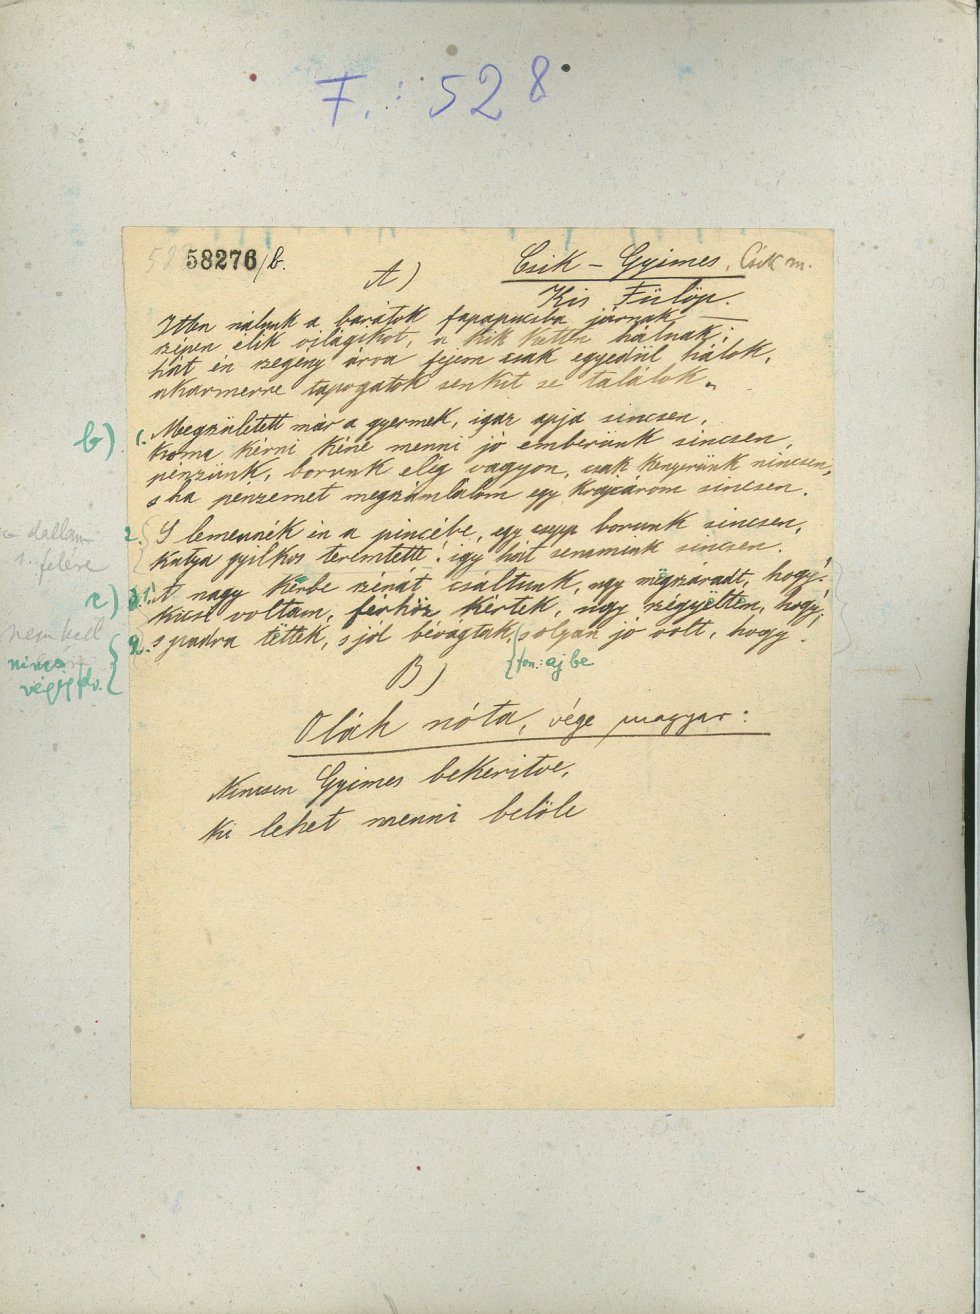 F.: 528
58276/b.
A)
Csik – Gyimes. Csík m.
Kis Fülöp.
Itten nálunk a barátok fapapucsba járnak
szépen élik világikot, a hik ketten hálnak;
hát én szegény árva fejem csak egyedül hálok,
akarmerre tapogatok senkit se találok.
b) 1. Megszületett már a gyermek, igaz apja sincsen,
koma kérni kéne menni jó emberünk sincsen,
pénzünk, borunk elég vagyon, csak kenyerünk nincsen,
s ha pénzemet megszámlálom egy krajczárom sincsen.
2. S lemennék én a pincébe, egy csepp borunk sincsen,
kutya gyilkos teremtette! így hát semmink sincsen.
dallam
1. felére
c) 1. A nagy kérbe szénát csáltunk, úgy megszáradt, hogy!
Kicsi voltam, férhöz kértek, úgy szégyeltem, hogy!
2. s pradra tëttek, s jól bévágtak, s olyan jó volt, hogy!
fon.: aj be
nem kell
nincs
végig
B)
Oláh nóta, vége magyar:
Nincsen Gyimes bekeritve,
Ki lehet menni belöle